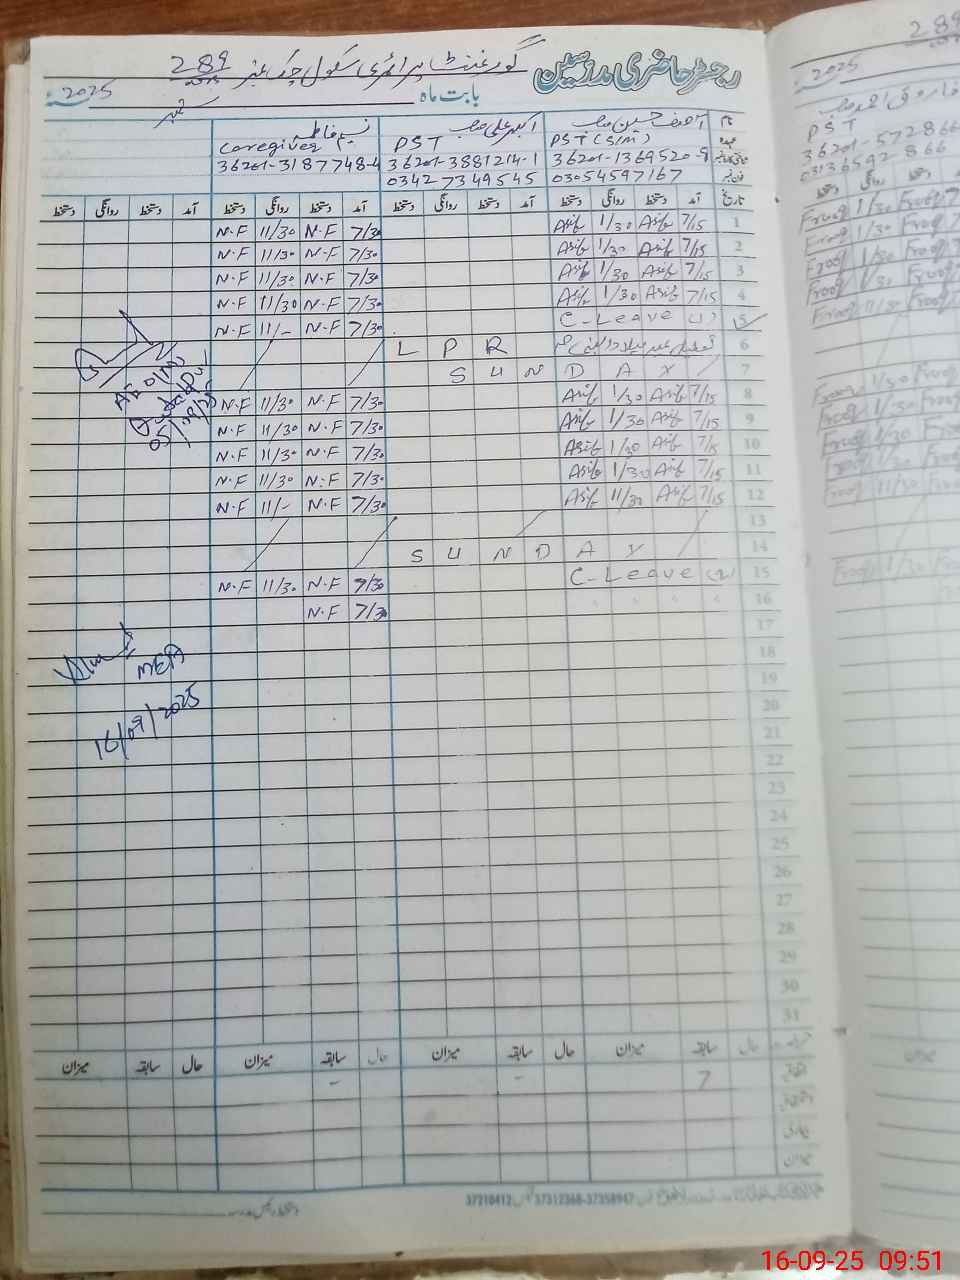 رجسٹر حاضری مدرسین گورنمنٹ پرائمری سکول چک نمبر 289
بابت ماہ ستمبر 2025
نام آصف حسین صاحب اکبر علی صاحب نسیم فاطمہ
عہدہ PST (SIM) PST Caregiver
36201-1369520-9 36201-3881214-1 36201-3187748-4
03054597167 03427349545
تاریخ آمد دستخط روانگی دستخط آمد دستخط روانگی دستخط آمد دستخط روانگی دستخط آمد دستخط روانگی دستخط
1 7/15 Asif 1/30 Asif 7/30 N.F 11/30 N.F
2 7/15 Asif 1/30 Asif 7/30 N.F 11/30 N.F
3 7/15 Asif 1/30 Asif 7/30 N.F 11/30 N.F
4 7/15 Asif 1/30 Asif 7/30 N.F 11/30 N.F
5 C-Leave (1) 7/30 N.F 11/- N.F
6 تعطیل عید میلاد النبی L P R
7 S U N D A Y
8 7/15 Asif 1/30 Asif 7/30 N.F 11/30 N.F
9 7/15 Asif 1/30 Asif 7/30 N.F 11/30 N.F
10 7/15 Asif 1/30 Asif 7/30 N.F 11/30 N.F
11 7/15 Asif 1/30 Asif 7/30 N.F 11/30 N.F
12 7/15 Asif 11/30 Asif 7/30 N.F 11/- N.F
13
14 S U N D A Y
15 C-Leave (2) 7/30 N.F 11/30 N.F
16 " " " " 7/30 N.F
17
18
19
20
21
22
23
24
25
26
27
28
29
30
31
AEO(M)
05/09/25
MEA
16/09/2025
حال سابقہ میزان حال سابقہ میزان حال سابقہ میزان حال سابقہ میزان
7 - -
میزان
37210412 37312368-37358947
289
2025
PST
36201-572866
03136592866
دستخط روانگی دستخط
Frooq 1/30 Frooq 7
Frooq 1/30 Frooq 7
Frooq 1/30 Frooq
Frooq 1/30 Frooq
Frooq 11/30 Frooq
Frooq 1/30 Frooq
Frooq 1/30 Frooq
Frooq 1/30 Frooq
Frooq 1/30 Frooq
Frooq 11/30 Frooq
Frooq 1/30 Frooq
میزان
16-09-25 09:51